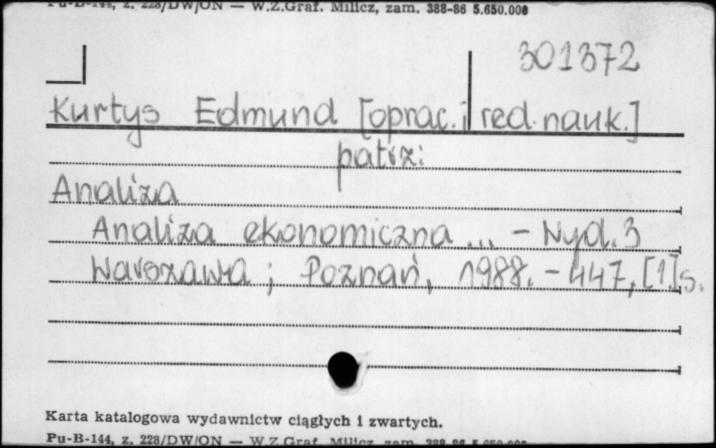 Pu-B-144, z. 228/DW/ON — W.Z.Graf. Milicz, zam. 388-86 5.650.000
301372
Kurtys Edmund [oprac. i red. nauk.]
patrz:
Analiza
Analiza ekonomiczna ... - Wyd. 3
Warszawa ; Poznań, 1988. - 447, [1] s.
Karta katalogowa wydawnictw ciągłych i zwartych.
Pu-B-144, z. 228/DW/ON — W.Z.Graf. Milicz, zam. 388-86 5.650.000